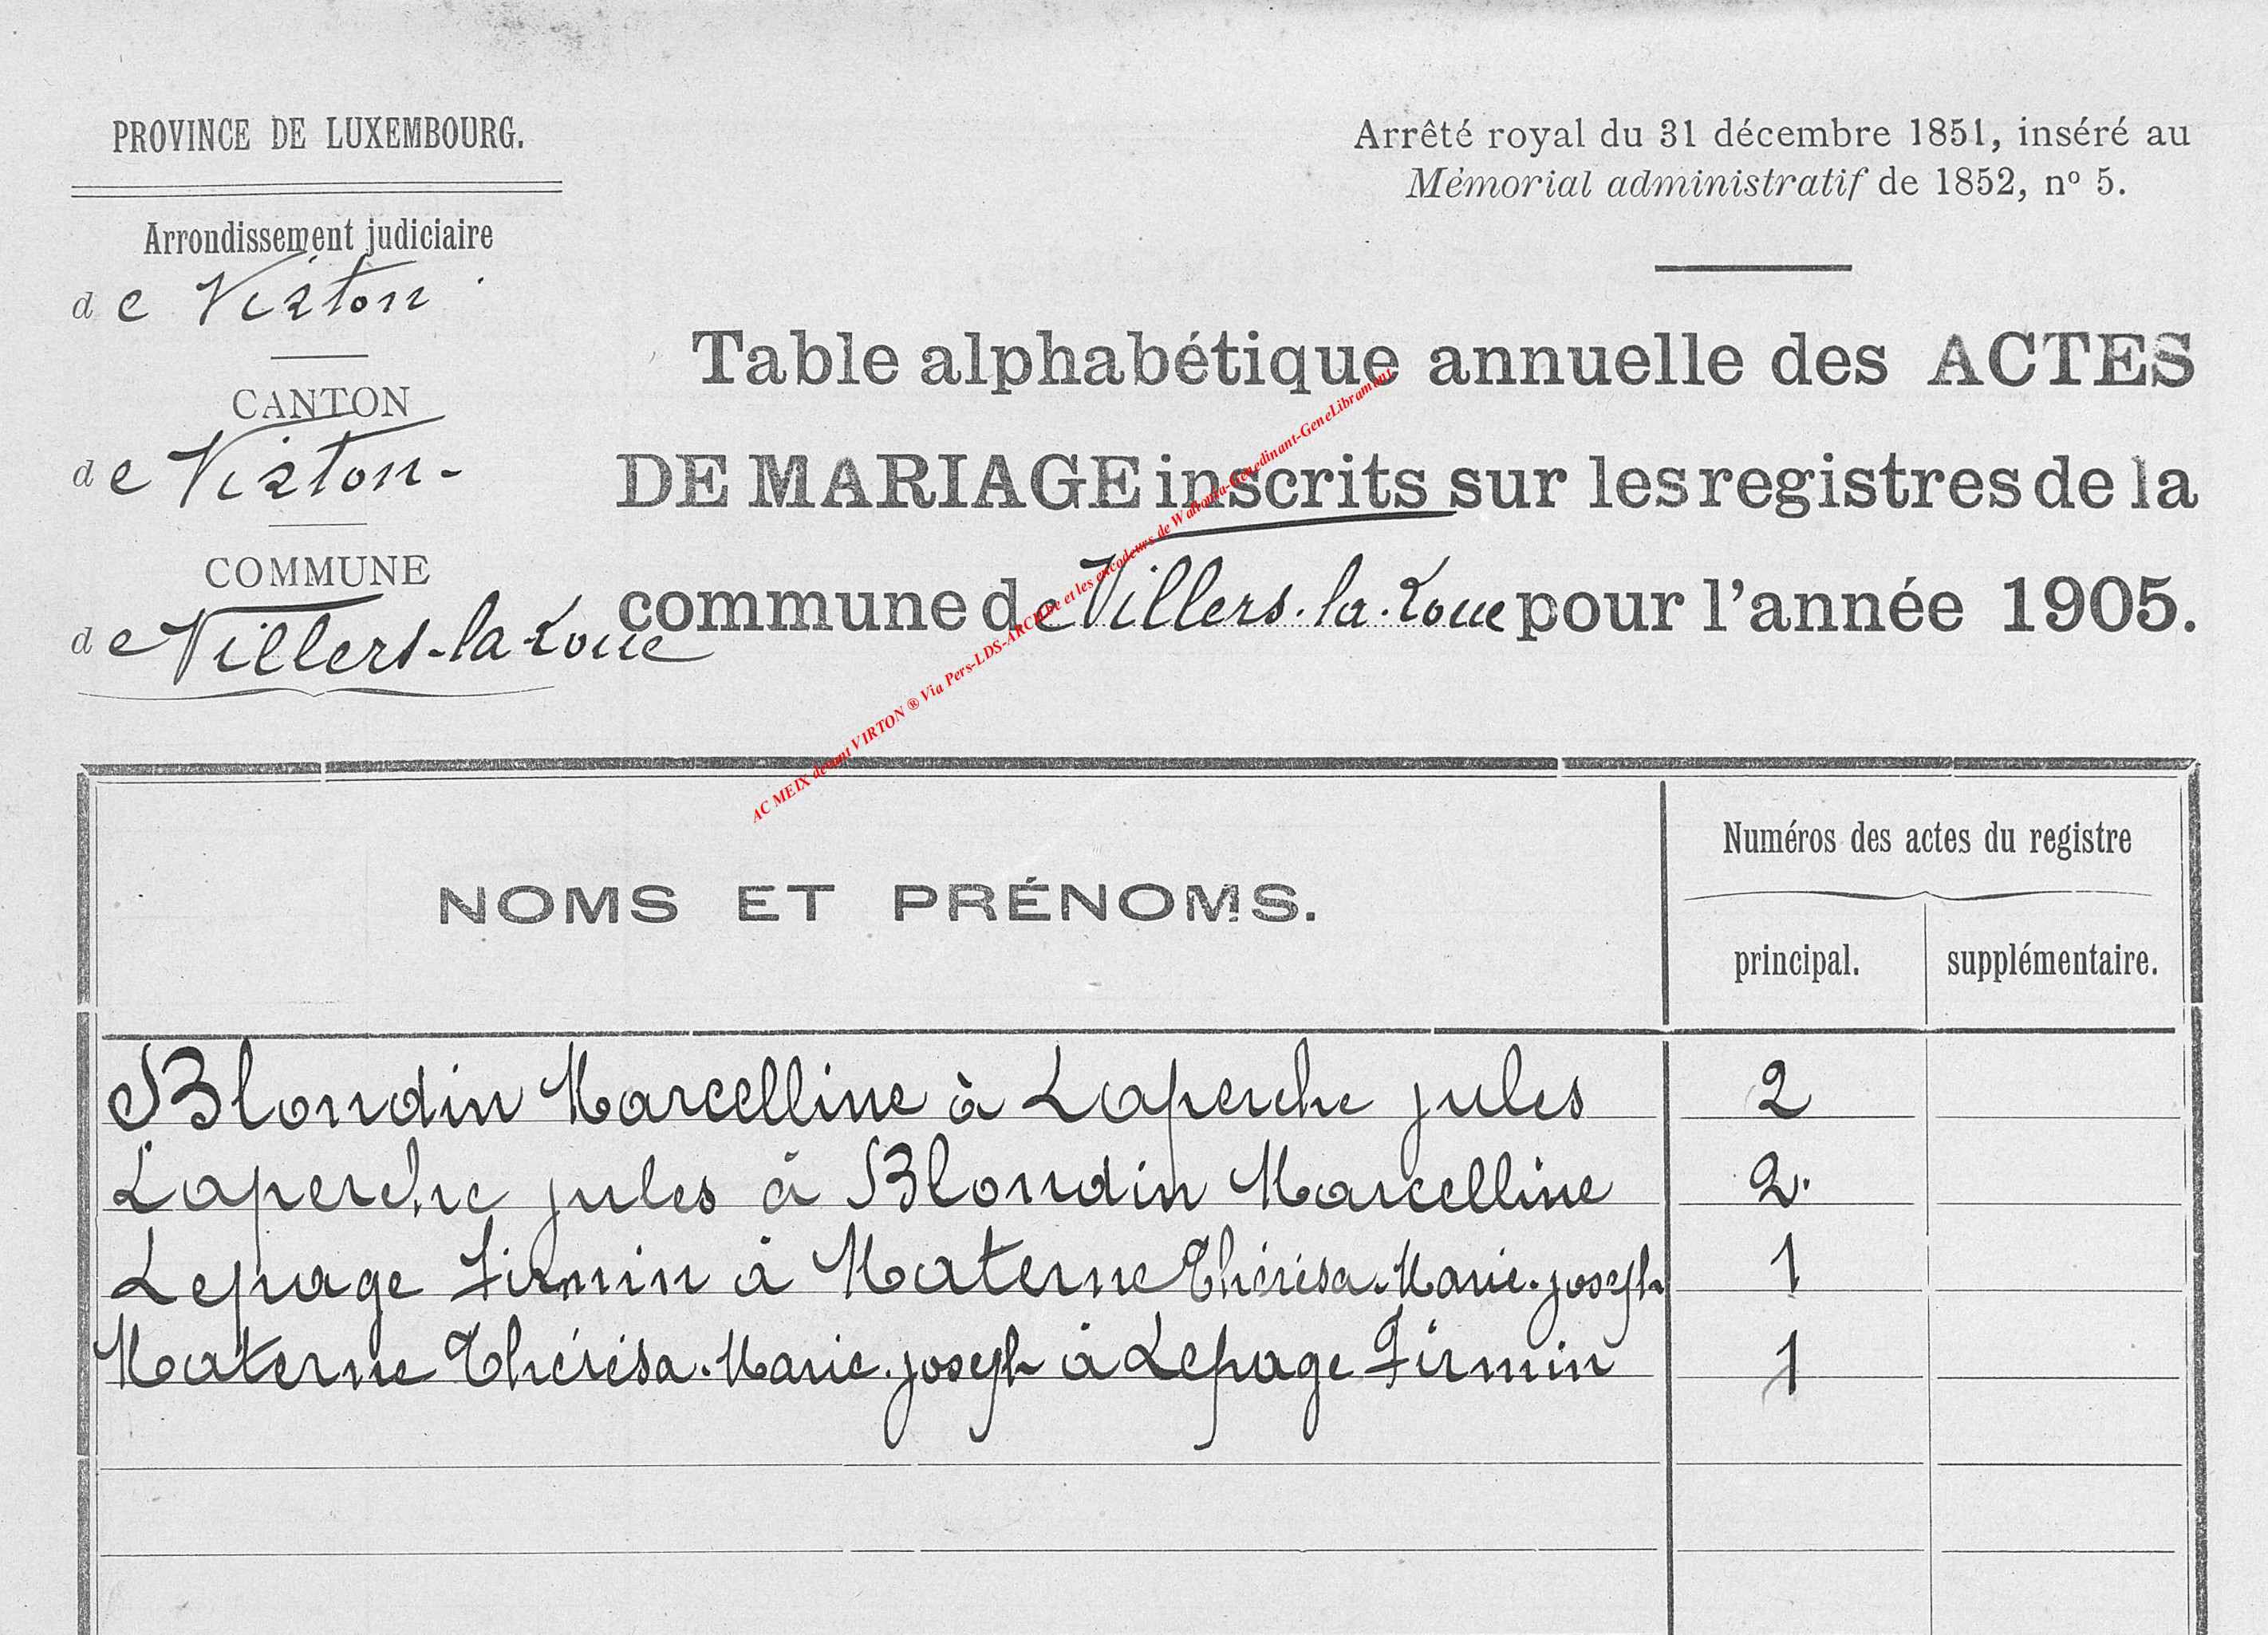 PROVINCE DE LUXEMBOURG.
Arrondissement judiciaire
de Virton
CANTON
de Virton-
COMMUNE
de Villers-la-Loue
Arrêté royal du 31 décembre 1851, inséré au
Mémorial administratif de 1852, nº 5.
Table alphabétique annuelle des ACTES
DE MARIAGE inscrits sur les registres de la
commune de Villers-la-Loue pour l'année 1905.
AC MEIX devant VIRTON ® Via Pers-LDS-ARCHive et les encodeurs de Wallonia-Genedinant-GeneLibramont
NOMS ET PRÉNOMS.
Numéros des actes du registre
principal. supplémentaire.
Blondin Marcelline à Laperche jules 2
Laperche jules à Blondin Marcelline 2.
Lepage Firmin à Materne Thérésa-Marie-joseph 1
Materne Thérésa-Marie-joseph à Lepage Firmin 1